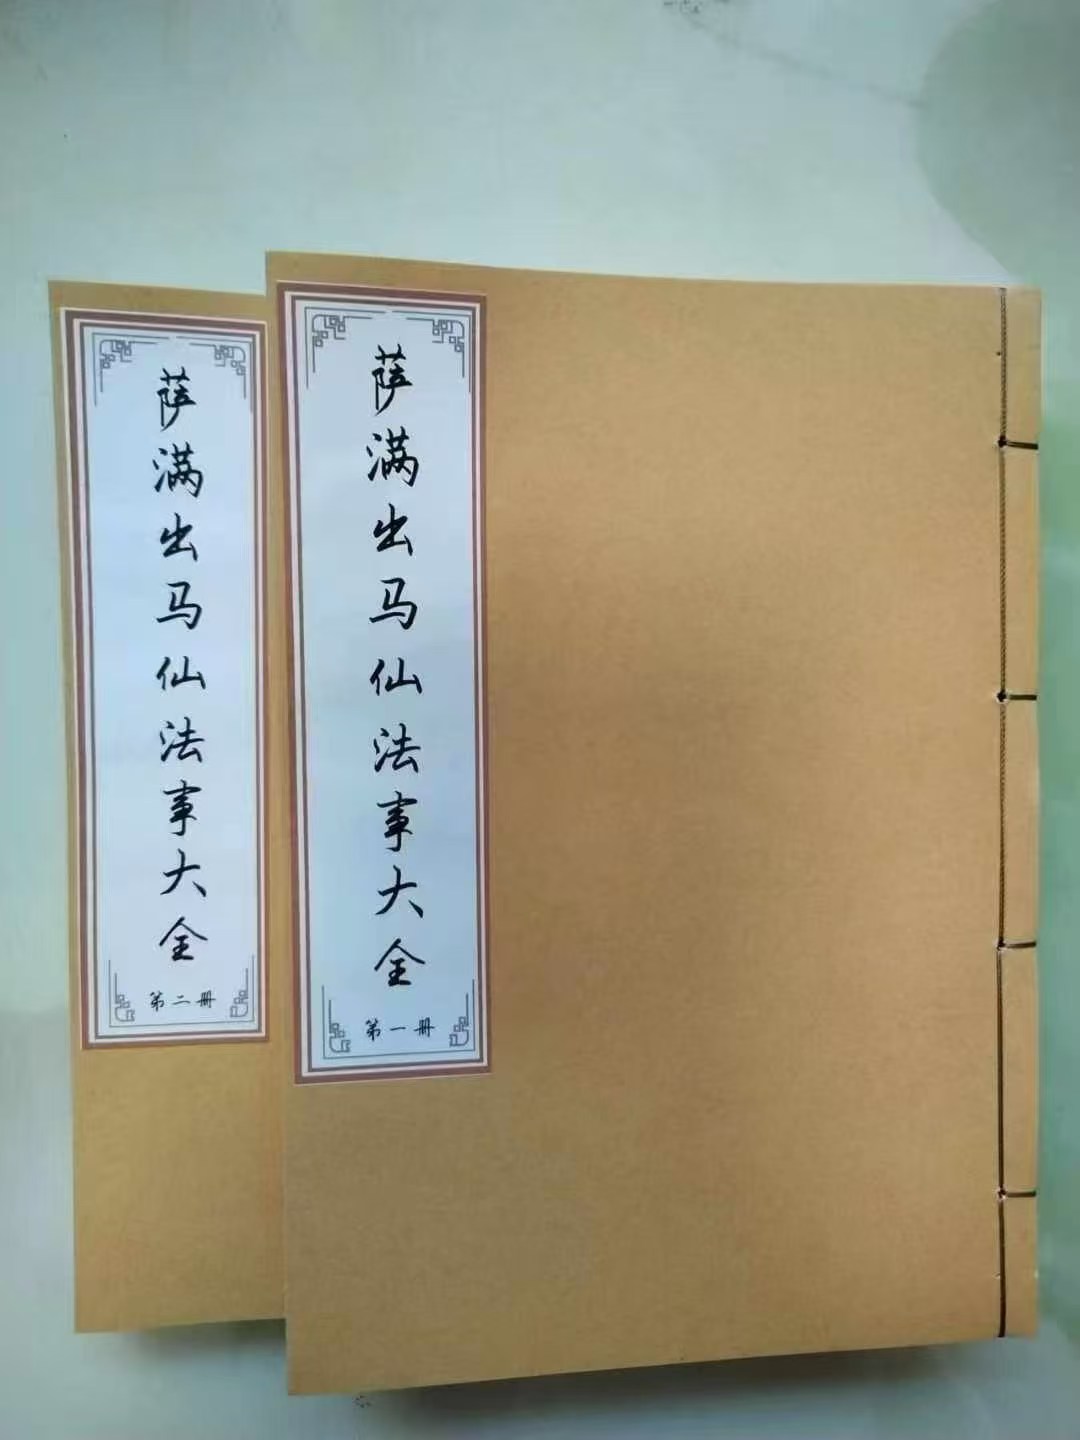 萨满出马仙法事大全
第一册
萨满出马仙法事大全
第二册